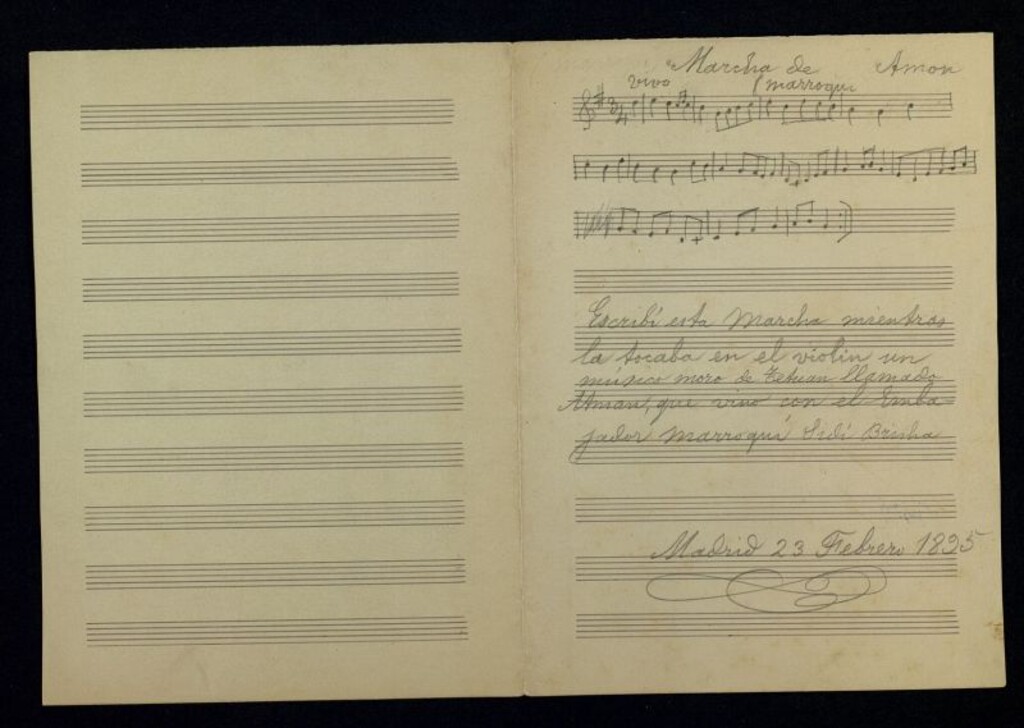 "Marcha de Amon
vivo marroquí
3/4
Escribí esta Marcha mientras
la tocaba en el violín un
músico moro de Tetuan llamado
Aman, que vino con el Emba-
jador Marroquí Sidi Brisha
Madrid 23 Febrero 1895